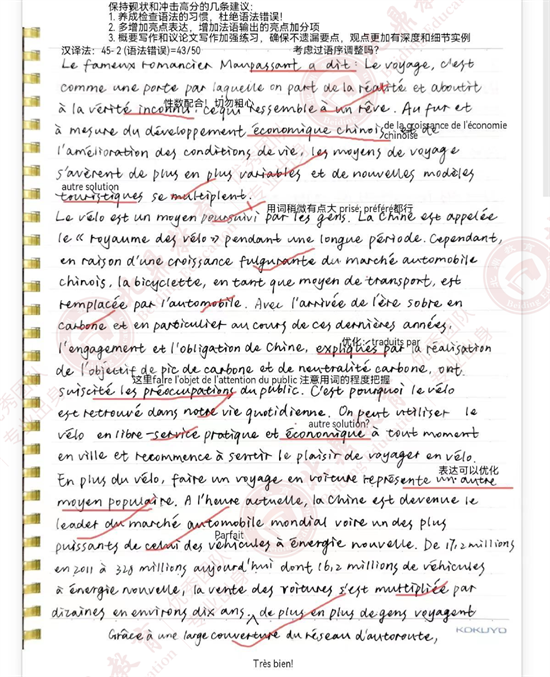 保持现状和冲击高分的几条建议:
1. 养成检查语法的习惯,杜绝语法错误!
2. 多增加亮点表达,增加法语输出的亮点加分项
3. 概要写作和议论文写作加强练习,确保不遗漏要点,观点更加有深度和细节实例
汉译法:45-2 (语法错误)=43/50
考虑过语序调整吗?
Le fameux romancier Maupassant a dit: Le voyage, c'est
comme une porte par laquelle on part de la réalité et aboutit
性数配合!切勿粗心
à la vérité inconnu; ce qui ressemble à un rêve. Au fur et
à mesure du développement économique chinois et de
de la croissance de l'économie
chinoise
l'amélioration des conditions de vie, les moyens de voyage
s'avèrent de plus en plus variables et de nouvelles modèles
autre solution
touristiques se multiplent.
用词稍微有点大 prisé; préféré都行
Le vélo est un moyen poursuivi par les gens. La Chine est appelée
le « royaume des vélo » pendant une longue période. Cependant,
en raison d'une croissance fulgurante du marché automobile
chinois, la bicyclette, en tant que moyen de transport, est
remplacée par l'automobile. Avec l'arrivée de l'ère sobre en
carbone et en particulier au cours de ces dernières années,
优化: traduits par
l'engagement et l'obligation de Chine, expliqués par la réalisation
de l'objectif de pic de carbone et de neutralité carbone, ont
这里faire l'objet de l'attention du public 注意用词的程度把握
suscité les préoccupations du public. C'est pourquoi le vélo
est retrouvé dans notre vie quotidienne. On peut utiliser le
autre solution?
vélo en libre-service pratique et économique à tout moment
en ville et recommence à sentir le plaisir de voyager en vélo.
表达可以优化
En plus du vélo, faire un voyage en voiture représente un autre
moyen populaire. A l'heure actuelle, la Chine est devenue le
leader du marché automobile mondial voire un des plus
Parfait
puissants de celui des véhicules à énergie nouvelle. De 17,2 millions
en 2011 à 328 millions aujourd'hui dont 16,2 millions de véhicules
à énergie nouvelle, la vente des voitures s'est multipliée par
dizaines en environs dix ans, de plus en plus de gens voyagent
Grâce à une large couverture du réseau d'autoroute,
KOKUYO
Très bien!